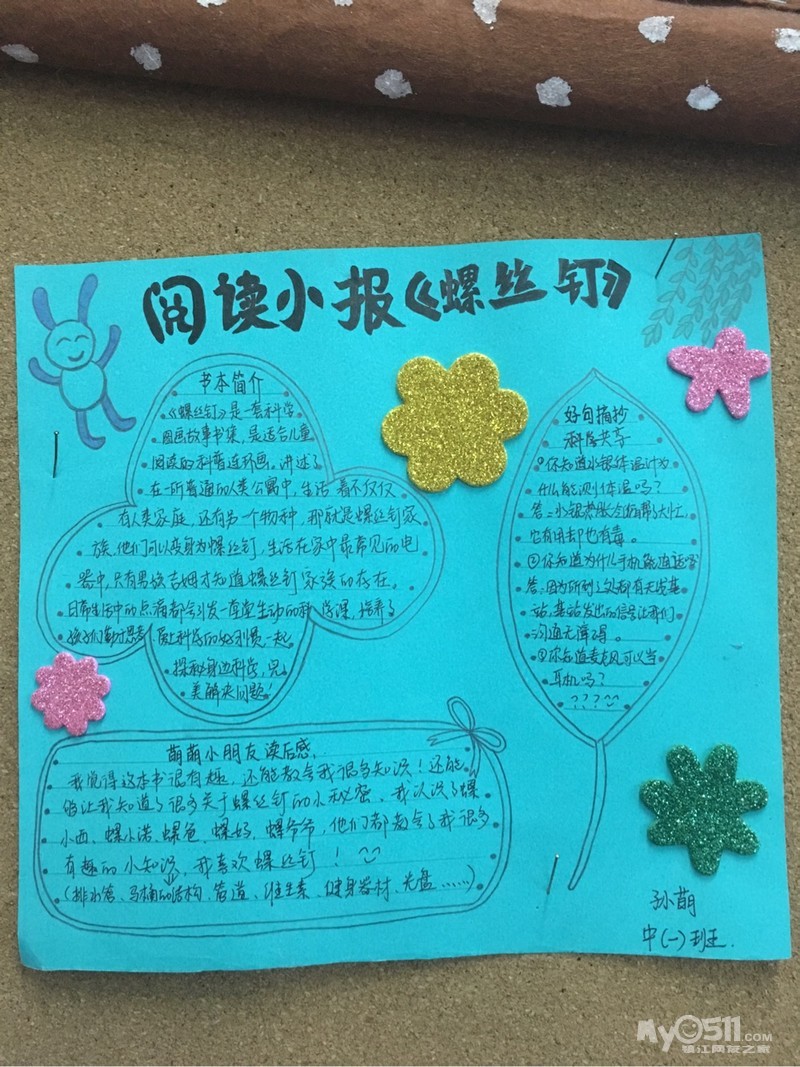 阅读小报《螺丝钉》
书本简介
《螺丝钉》是一套科学
图画故事书集,是适合儿童
阅读的科普连环画。讲述了
在一所普通的人类公寓中,生活着不仅仅
有人类家庭,还有另一个物种,那就是螺丝钉家
族,他们可以变身为螺丝钉,生活在家中最常见的电
器中,只有男孩吉姆才知道螺丝钉家族的存在。
日常生活中的点滴都会引发一堂堂生动的科学课,培养了
孩子们勤于思考 爱上科学的好习惯 一起
探秘身边科学,完
美解决问题!
好句摘抄
科原共享
①你知道水银体温计为
什么能测体温吗?
答:水银热胀冷缩帮了大忙,
它有用却也有毒。
②你知道为什么手机能通话吗?
答:因为所到之处都有无线基
站,基站发出的信号让我们
沟通无障碍。
③你知道麦克风可以当
耳机吗?
????
萌萌小朋友读后感
我觉得这本书很有趣,还能教会我很多知识!还能
够让我知道了很多关于螺丝钉的小秘密,我认识了螺
小西、螺小诺、螺爸、螺妈、螺爷爷,他们都教会了我很多
有趣的小知识,我喜欢螺丝钉!
(排水管、马桶的结构、管道、维生素、健身器材、光盘……)
孙萌
中(一)班
My0511.COM
镇江网友之家